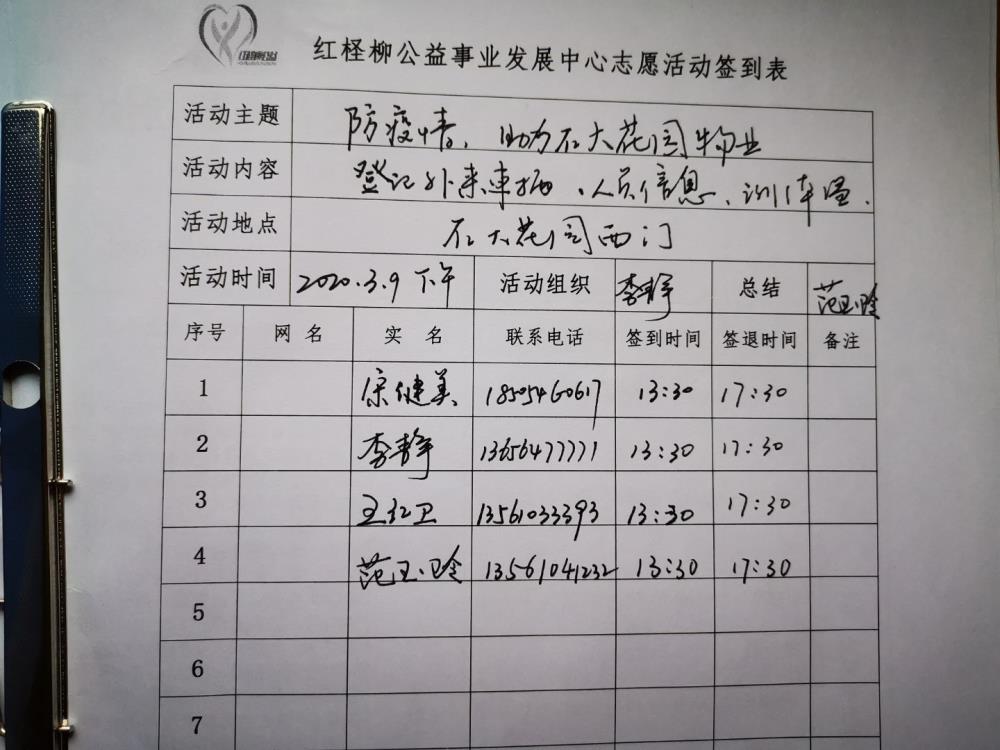 红柽柳公益事业发展中心志愿活动签到表
活动主题 防疫情，助力石大花园物业
活动内容 登记外来车辆、人员信息、测体温.
活动地点 石大花园西门
活动时间 2020.3.9 下午 活动组织 李静 总结 范玉玲
序号 网名 实名 联系电话 签到时间 签退时间 备注
1 宋健美 18505460617 13:30 17:30
2 李静 13656477771 13:30 17:30
3 王红卫 13561033393 13:30 17:30
4 范玉玲 13561041232 13:30 17:30
5
6
7